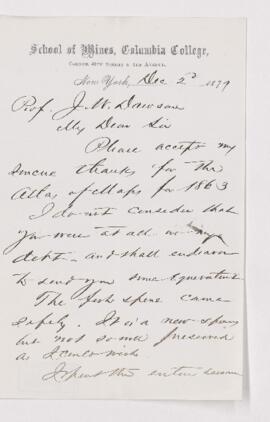 School of Mines, Columbia College,
Corner 49th Street & 4th Avenue.
New York, Dec 2d 1879
Prof. J. W. Dawson
My Dear Sir
Please accept my
sincere thanks for the
Atlas of Maps for 1863
I do not consider that
you were at all in my
debt - and shall endeavor
to send you some equivalent
The fish spine came
safely. It is a new species
but not so well preserved
as I could wish.
I spent the entire